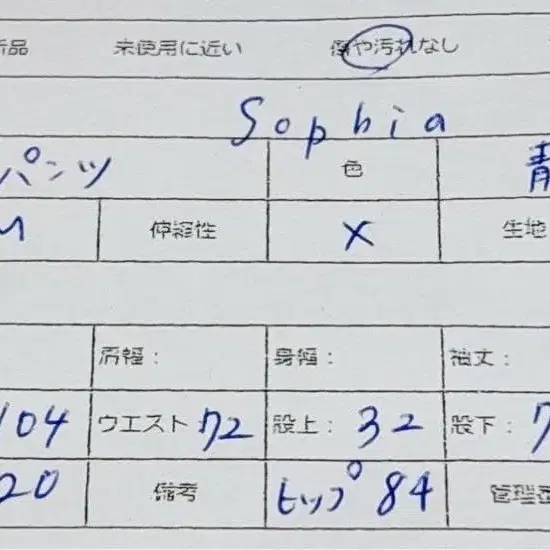 品 未使用に近い 傷や汚れなし
Sophia
パンツ 色 青
M 伸縮性 × 生地
肩幅： 身幅： 袖丈：
104 ウエスト 72 股上： 32 股下： 7
20 備考 ヒップ 84 管理番